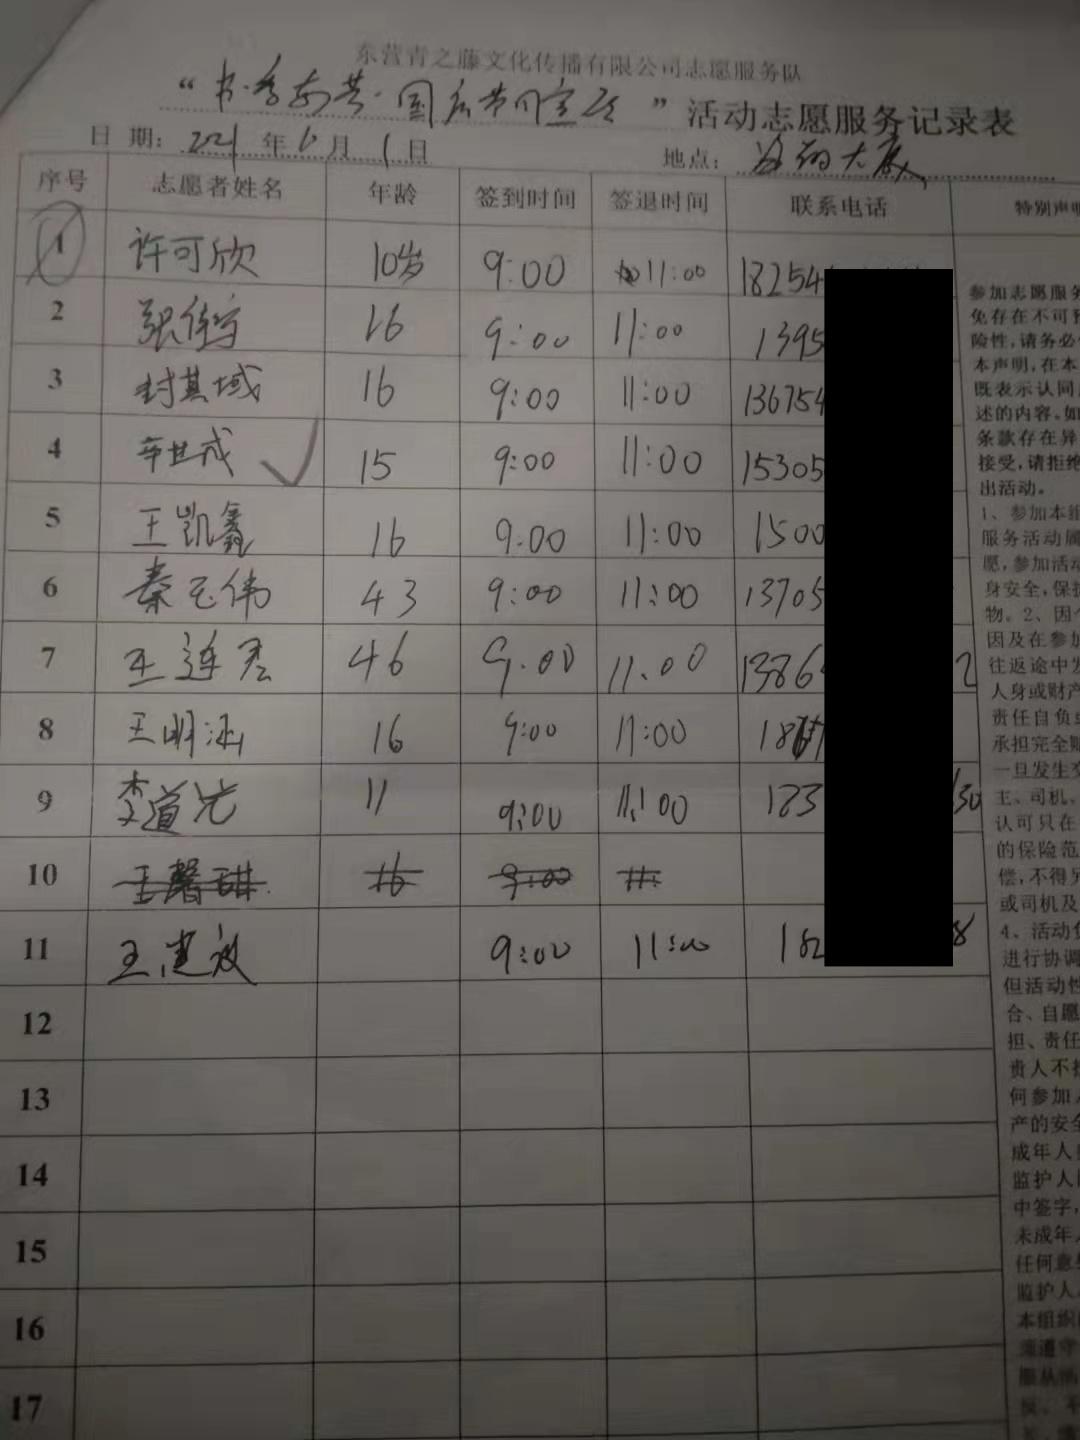 东营青之藤文化传播有限公司志愿服务队
“书·香东营·国庆节问宣”活动志愿服务记录表
日 期: 2021 年 6 月 1 日 地点: 大厦
序号 志愿者姓名 年龄 签到时间 签退时间 联系电话 特别声明
1 许可欣 10岁 9:00 11:00 18254
2 张 16 9:00 11:00 1395
3 封其域 16 9:00 11:00 136754
4 辛世成 15 9:00 11:00 15305
5 王凯鑫 16 9:00 11:00 1500
6 秦玉伟 43 9:00 11:00 13705
7 王连君 46 9:00 11:00 1386 2
8 王明涵 16 9:00 11:00 18
9 李道光 11 9:00 11:00 183 30
10 王馨琪 16 9:00 11:
11 王建波 9:00 11:00 182 8
12
13
14
15
16
17
参加志愿服务
免存在不可预
险性,请务必
本声明,在本
既表示认同
述的内容,如
条款存在异
接受,请拒绝
出活动。
1、参加本组
服务活动属
愿,参加活动
身安全,保护
物。2、因个
因及在参加
往返途中发
人身或财产
责任自负或
承担完全赔
一旦发生交
主、司机、
认可只在
的保险范
偿,不得另
或司机及
4、活动负
进行协调
但活动性
合、自愿
担、责任
责人不承
何参加人
产的安全
成年人
监护人
中签字,
未成年人
任何意
监护人
本组织
须遵守
服从